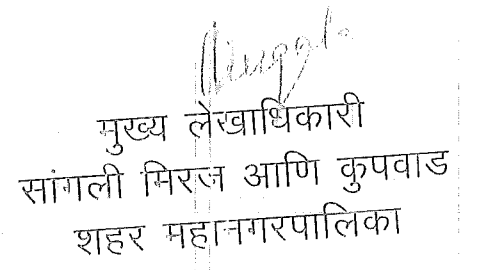 मुख्य लेखाधिकारी
सांगली मिरज आणि कुपवाड
शहर महानगरपालिका